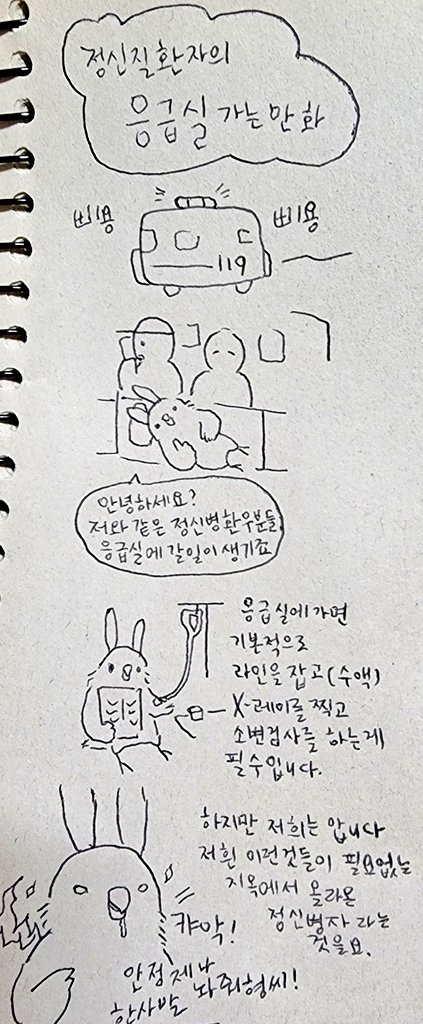 정신질환자의
응급실 가는 만화
삐용
삐용
119
안녕하세요?
저와 같은 정신병환우분들
응급실에 갈일이 생기죠
응급실에 가면
기본적으로
라인을 잡고(수액)
X-레이를 찍고
소변검사를 하는게
필수입니다.
하지만 저희는 압니다
저흰 이런것들이 필요없는
지옥에서 올라온
정신병자 라는
것을요.
캬악!
안정제나
한사발 놔줘형씨!